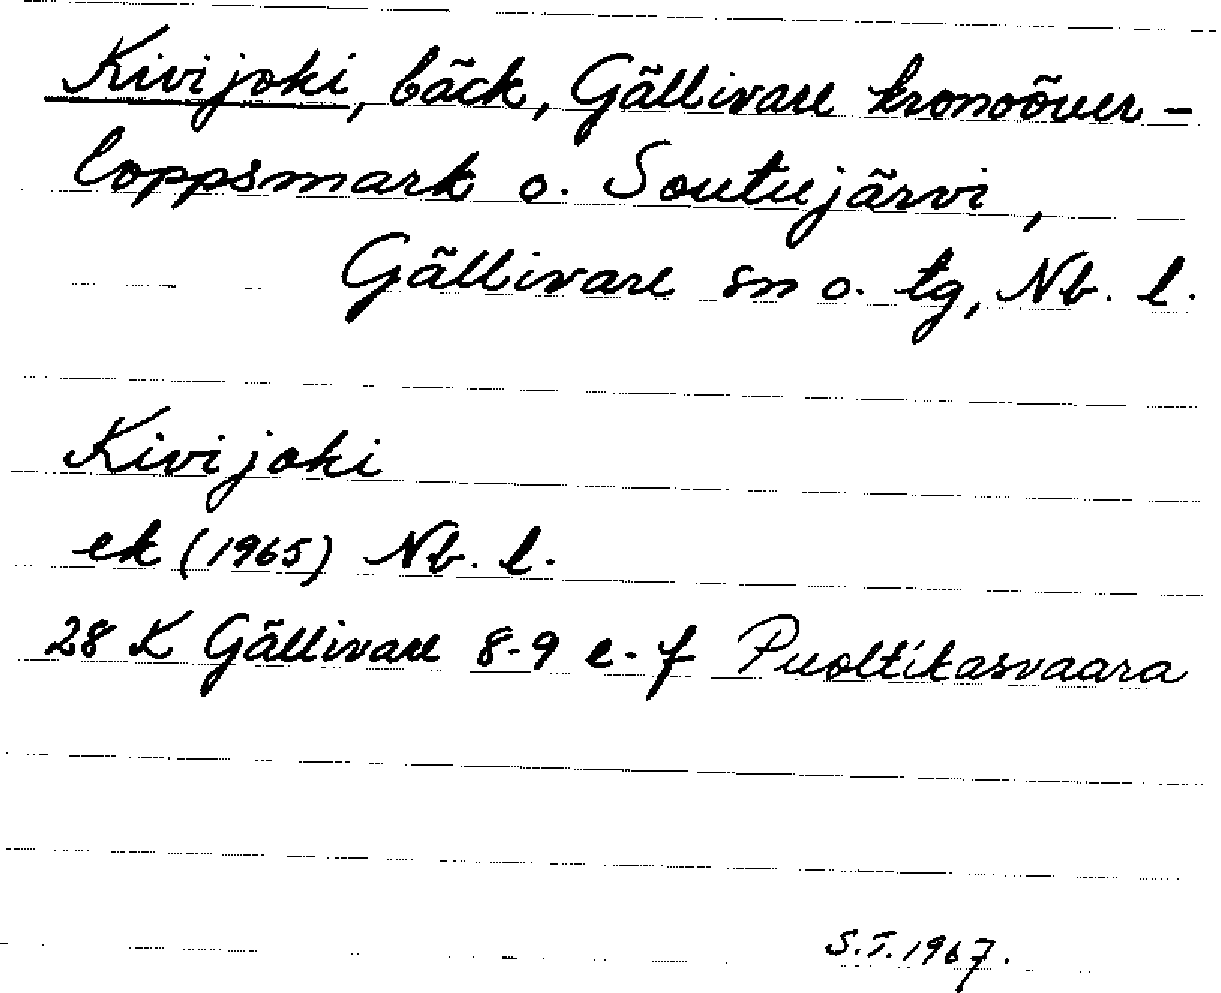 Kivijoki, bäck, Gällivare kronoöver-
loppsmark o. Soutujärvi,
Gällivare sn o. tg, Nb. l.
Kivijoki
ek (1965) Nb. l.
28 K Gällivare 8-9 e-f Puoltikasvaara
S.T. 1967.